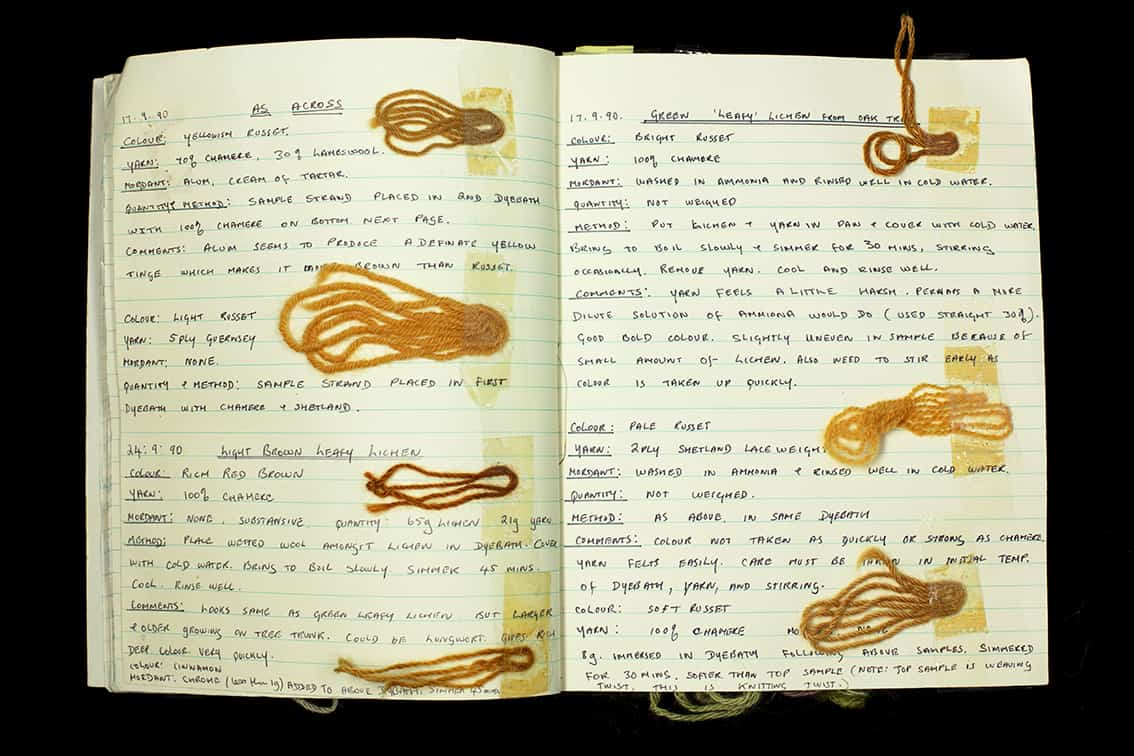 17.9.90 AS ACROSS
COLOUR: YELLOWISH RUSSET.
YARN: 70% CHAMERE, 30% LAMBSWOOL.
MORDANT: ALUM, CREAM OF TARTAR.
QUANTITY & METHOD: SAMPLE STRAND PLACED IN 2ND DYEBATH
WITH 100% CHAMERE ON BOTTOM NEXT PAGE.
COMMENTS: ALUM SEEMS TO PRODUCE A DEFINATE YELLOW
TINGE WHICH MAKES IT MORE BROWN THAN RUSSET.
COLOUR: LIGHT RUSSET
YARN: 5PLY GUERNSEY
MORDANT: NONE.
QUANTITY & METHOD: SAMPLE STRAND PLACED IN FIRST
DYEBATH WITH CHAMERE & SHETLAND.
24:9:90 LIGHT BROWN LEAFY LICHEN
COLOUR: RICH RED BROWN
YARN: 100% CHAMERE
MORDANT: NONE. SUBSTANSIVE. QUANTITY: 65g LICHEN. 21g YARN.
METHOD: PLACE WETTED WOOL AMONGST LICHEN IN DYEBATH. COVER
WITH COLD WATER. BRING TO BOIL SLOWLY. SIMMER 45 MINS.
COOL. RINSE WELL.
COMMENTS: LOOKS SAME AS GREEN LEAFY LICHEN BUT LARGER
& OLDER GROWING ON TREE TRUNK. COULD BE LUNGWORT. GIVES RICH
DEEP COLOUR VERY QUICKLY.
COLOUR: CINNAMON
MORDANT: CHROME (less than 1g) ADDED TO ABOVE DYEBATH. SIMMER 45 mins
17.9.90. GREEN 'LEAFY' LICHEN FROM OAK
COLOUR: BRIGHT RUSSET
YARN: 100% CHAMERE
MORDANT: WASHED IN AMMONIA AND RINSED WELL IN COLD WATER.
QUANTITY: NOT WEIGHED
METHOD: PUT LICHEN + YARN IN PAN & COVER WITH COLD WATER.
BRING TO BOIL SLOWLY & SIMMER FOR 30 MINS, STIRRING
OCCASIONALLY. REMOVE YARN. COOL AND RINSE WELL.
COMMENTS: YARN FEELS A LITTLE HARSH. PERHAPS A MORE
DILUTE SOLUTION OF AMMIONA WOULD DO (USED STRAIGHT 30%).
GOOD BOLD COLOUR. SLIGHTLY UNEVEN IN SAMPLE BECAUSE OF
SMALL AMOUNT OF LICHEN. ALSO NEED TO STIR EARLY AS
COLOUR IS TAKEN UP QUICKLY.
COLOUR: PALE RUSSET
YARN: 2PLY SHETLAND LACE WEIGHT
MORDANT: WASHED IN AMMONIA & RINSED WELL IN COLD WATER.
QUANTITY: NOT WEIGHED.
METHOD: AS ABOVE, IN SAME DYEBATH
COMMENTS: COLOUR NOT TAKEN AS QUICKLY OR STRONG AS CHAMERE.
YARN FELTS EASILY. CARE MUST BE TAKEN IN INITIAL TEMP.
OF DYEBATH, YARN, AND STIRRING.
COLOUR: SOFT RUSSET
YARN: 100% CHAMERE
8g. IMMERSED IN DYEBATH FOLLOWING ABOVE SAMPLES. SIMMERED
FOR 30 MINS. SOFTER THAN TOP SAMPLE (NOTE: TOP SAMPLE IS WEAVING
TWIST. THIS IS KNITTING TWIST.)